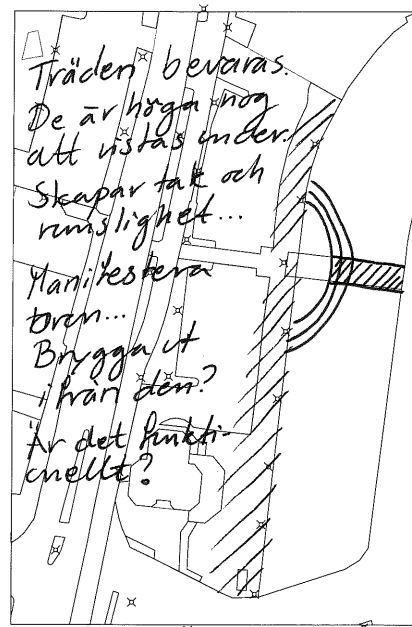 Träden bevaras.
De är höga nog
att vistas under.
Skapar tak och
rumslighet...
Manifestera
bron...
Brygga ut
ifrån den?
Är det funkti-
onellt?